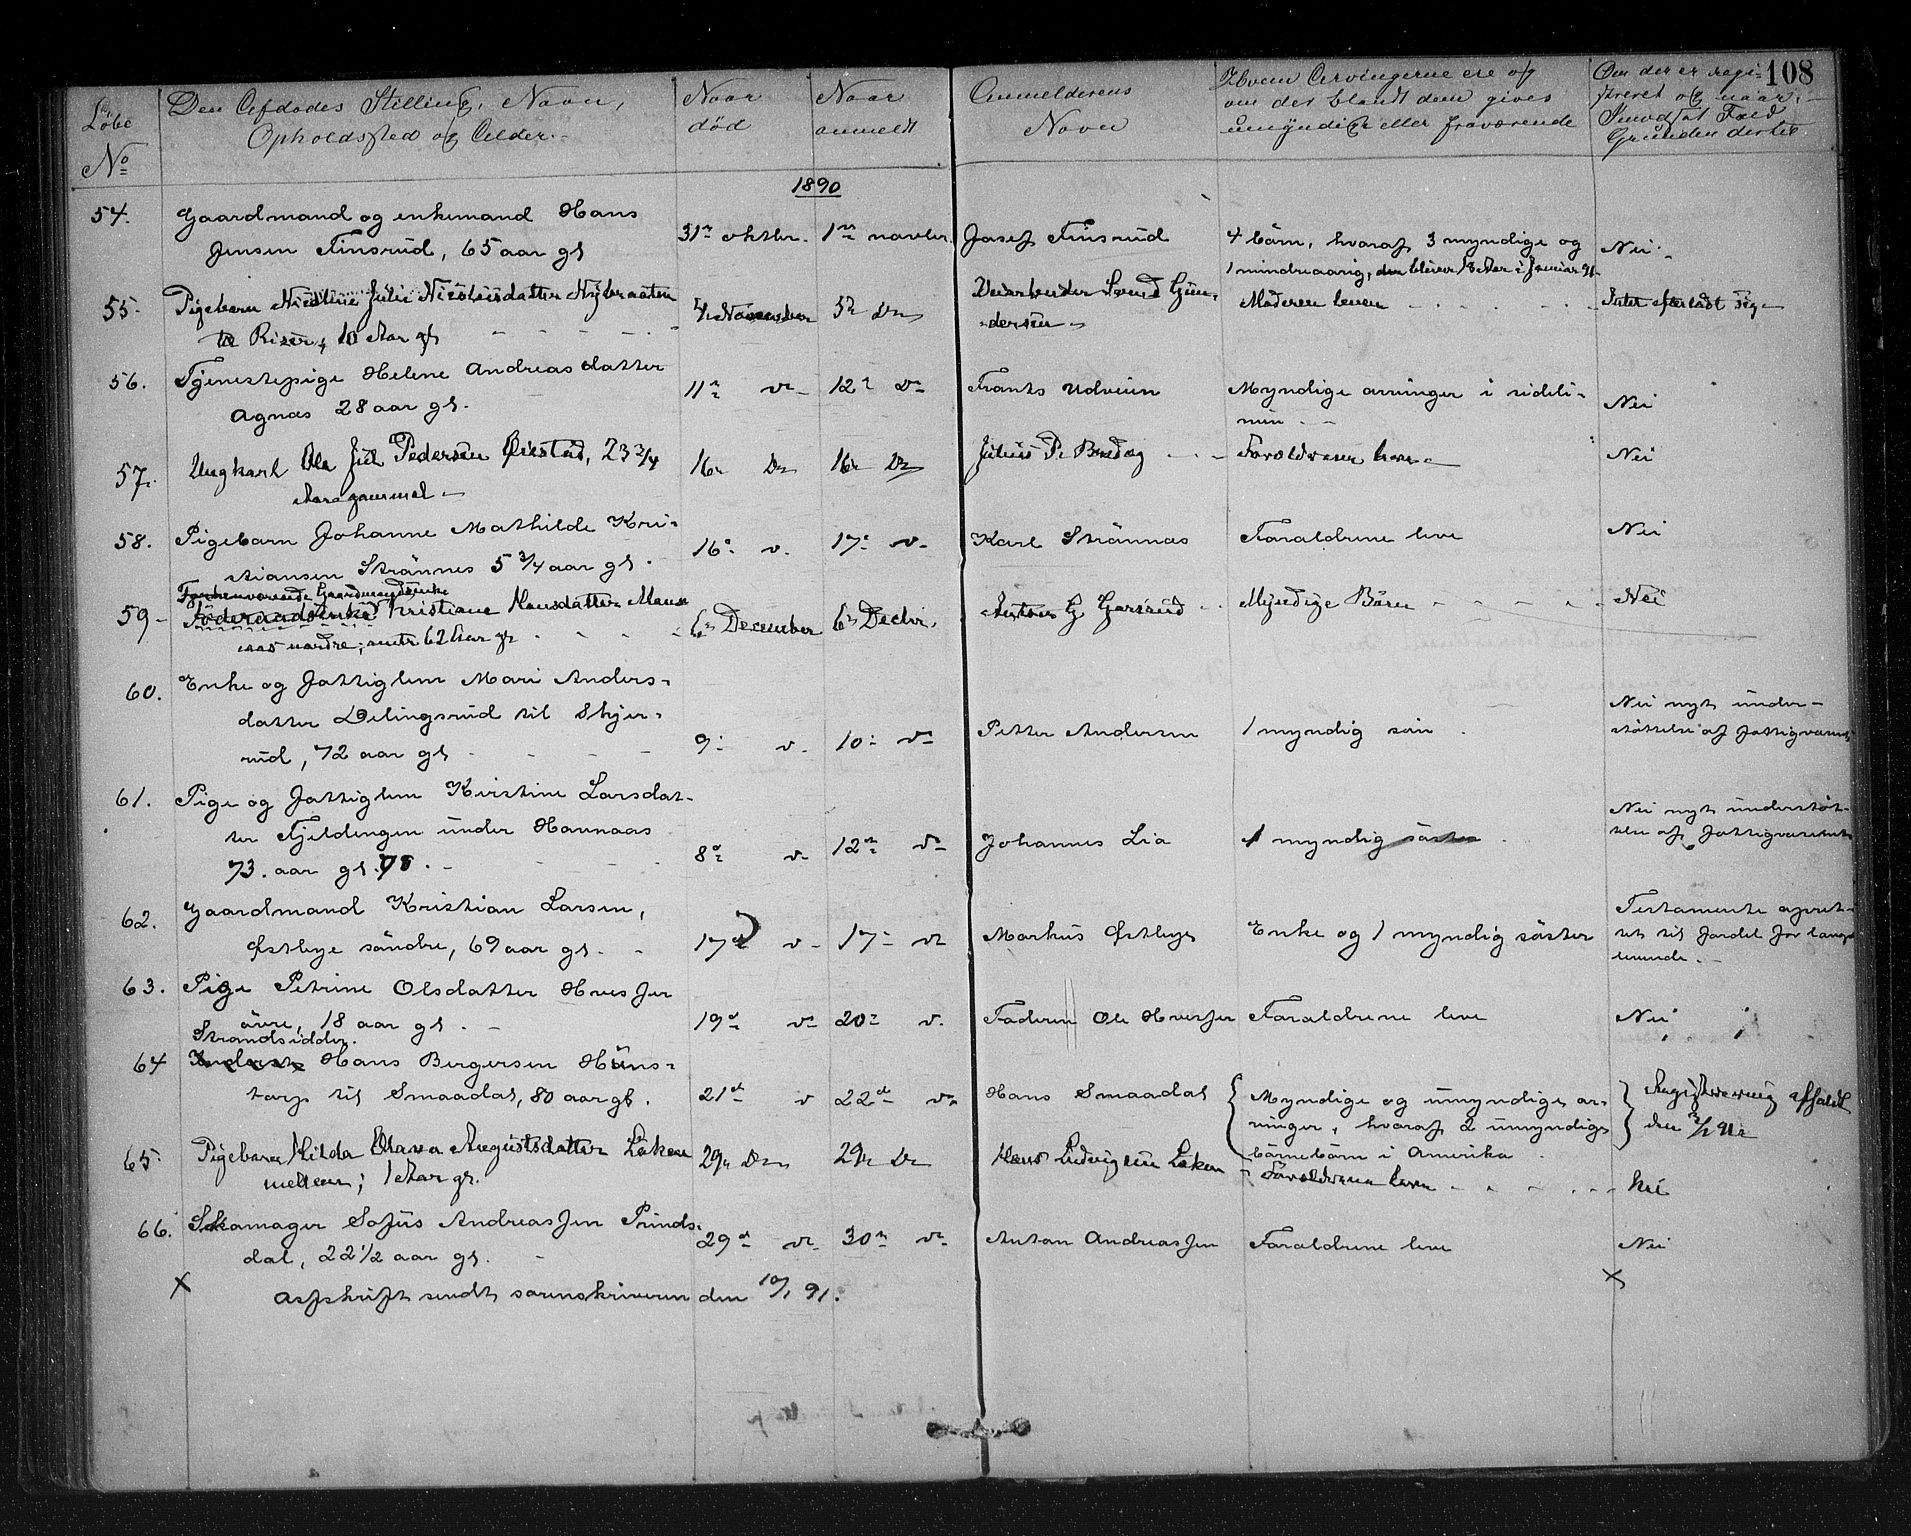 108
Løbe No
Den Afdødes Stilling, Navn, Opholdssted og Alder.
Naar død
Naar anmeldt
Anmelderens Navn
Hvem Arvingerne ere og om der blandt dem gives umyndige eller fraværende
Om der er regi-streret og naar, i Modsat Fald Grunden dertil
1890
54. Gaardmand og enkemand Hans
Jensen Finsrud, 65 aar gl
31te oktbr. 1ste novbr. Josef Finsrud
4 børn, hvoraf 3 myndige og
1 mindreaarig, den bliver 18 Aar i Januar 91
Nei
55. Pigebarn Nicoline Julie Nicolaisdatter Nybraaten
til Riser, 10 Aar gl
4de November 5te Ds
Svend Gun-
dersen
Moderen lever
Intet efterladt sig
56. Tjenestepige Helene Andreasdatter
Agnæs 28 aar gl.
11te ds 12te ds Frants Udveien
Myndige arvinger i sideli-
nien
Nei
57. Ungkarl Ole Juel Pedersen Ørstad, 23 3/4
Aar gammel
16de Ds 16de Ds Julius P. Bredag
Forældrene lever
Nei
58. Pigebarn Johanne Mathilde Kri-
stiansen Strønnes 5 3/4 aar gl.
16de ds. 17de ds Karl Strønnæs
Foraldrene leve
Nei
59. Forhenværende Gaardmandsenke
Føderaadsenke Kristiane Hansdatter Mans
aas nordre, 62 Aar gl
6te December 6te Decbr. Anton G Garsrud
Myndige Børn
Nei
60. Enke og fattiglem Mari Anders-
datter Delingsrud til Skjer-
rud, 72 aar gl
9de ds. 10de ds Petter Andersen
1 myndig søn
Nei nyt under-
støttelse af fattigvæsnet
61. Pige og fattiglem Kirstine Larsdat-
ter Fjeldengen under Haunaas
73. aar gl. 78.
8de ds 12te ds Johannes Lia
1 myndig søster
Nei nyt understøt-
telse af fattigvæsnet
62. Gaardmand Kristian Larsen,
Østbye søndre, 69 aar gl.
17de ds 17de ds Markus Østbye
Enke og 1 myndig søster
Testamente opret-
tet til fordel for længst
levende.
63. Pige Petrine Olsdatter Hvesjer
øvre, 18 aar gl.
19de ds 20de ds. Faderen Ole Hvesjer
Foraldrene leve
Nei
64 Strandsidder.
Inderst Hans Bergersen Høns-
torp til Smaadal, 80 aar gl.
21de ds 22de ds. Hans Smaadal
Myndige og umyndige ar-
vinger, hvoraf 2 umyndige
børnebørn i Amerika
Registrering afholdt
den 2/1 91
65. Pigebarn Hilda Olava Augustsdatter Løken
mellem, 1 Aar gl.
29de Ds 29de Ds Hans Ludvigsen Løken
Forældrene lever
Nei
66. Skomager Sofus Andreassen Prinds-
dal, 22 1/2 aar gl.
29de ds 30te ds Anton Andreassen
Foraldrene leve
Nei
x Afskrift sendt sorenskriveren den 10/1 91.
x